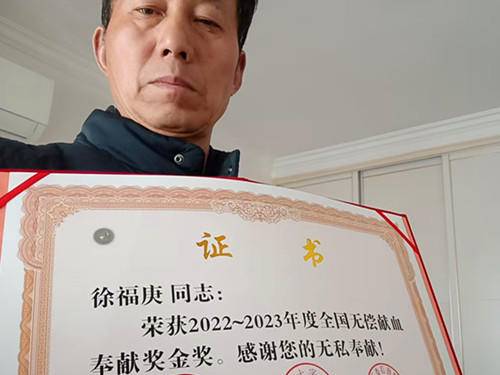 证书
徐福庚 同志：
荣获2022~2023年度全国无偿献血
奉献奖金奖。感谢您的无私奉献！